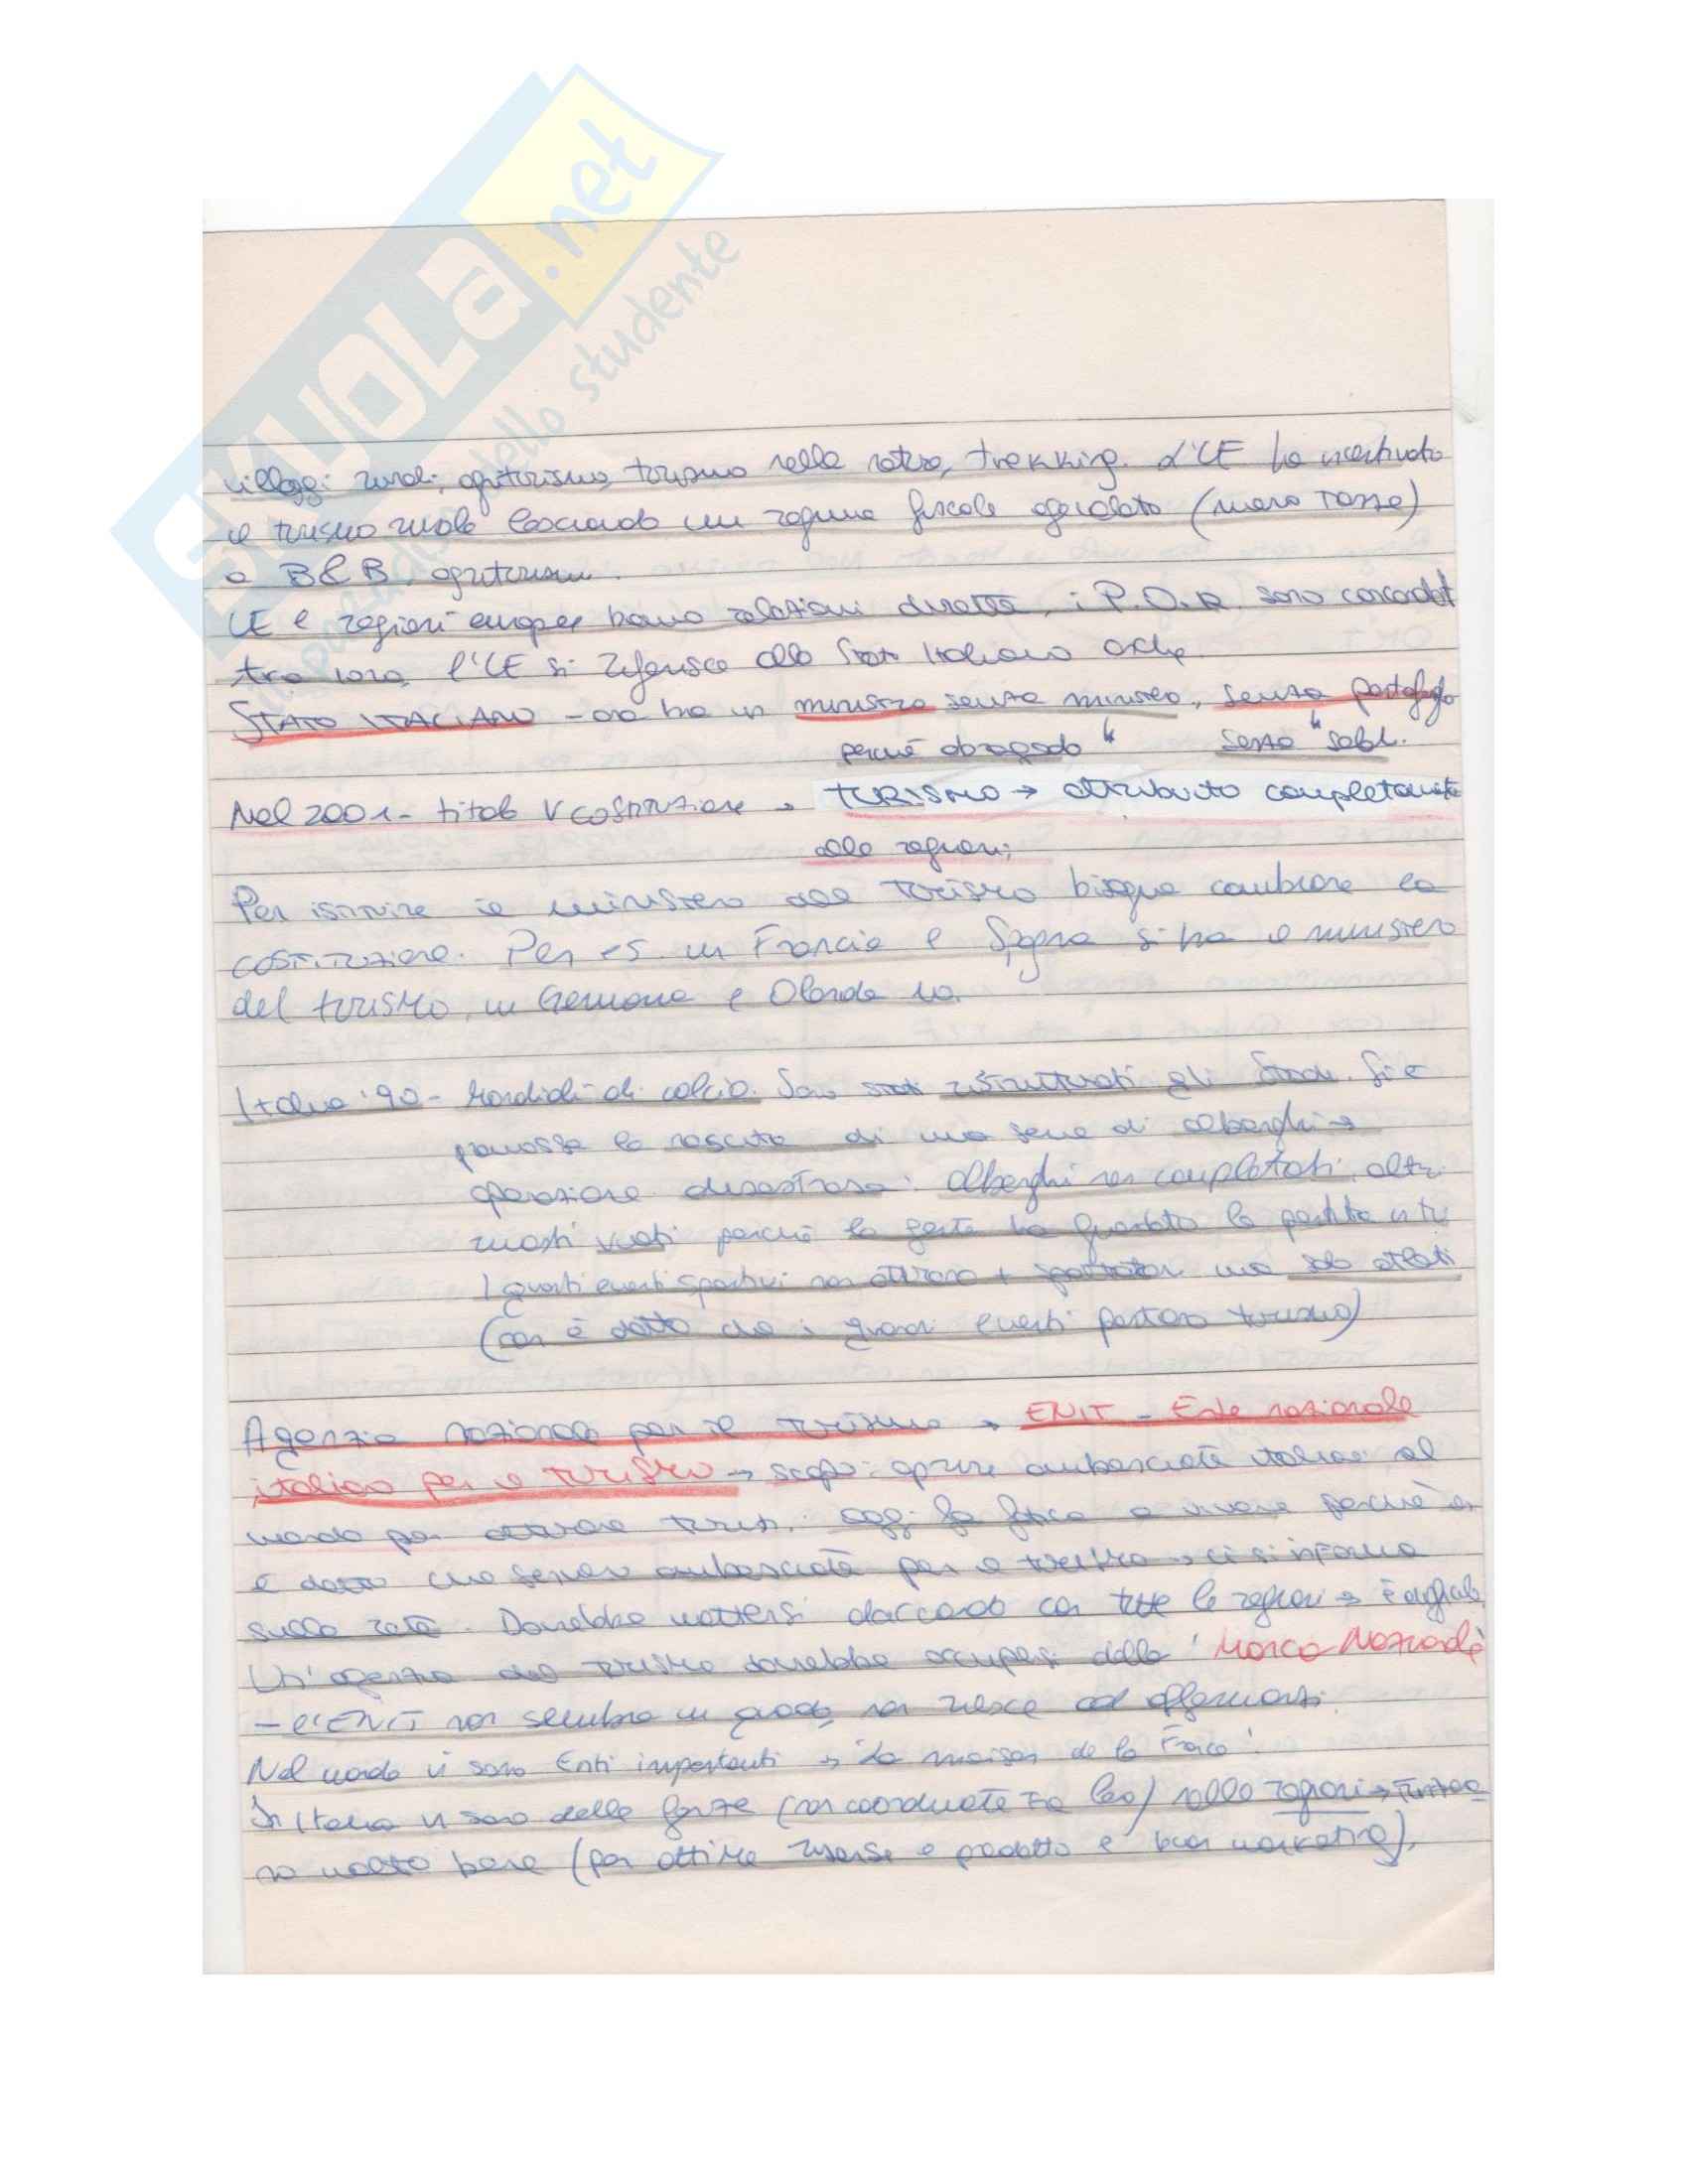 SKUOLA.net
il paradiso dello studente
villaggi rurali, agriturismo, turismo nella natura, trekking. L'UE ha incentivato
il turismo rurale lasciando un regime fiscale agevolato (meno tasse)
a B&B, agriturismi.
UE e regioni europee hanno relazioni dirette, i P.O.R. sono concordati
tra loro, l'UE si riferisce allo Stato Italiano anche
STATO ITALIANO - ora ha un ministro senza ministero, senza portafoglio
perché abrogado senza soldi.
Nel 2001 - titolo V costituzione → TURISMO → attribuito completamente
alle regioni;
Per istituire il ministero del turismo bisogna cambiare la
costituzione. Per es. in Francia e Spagna si ha il ministero
del turismo, in Germania e Olanda no.
Italia '90 - Mondiali di calcio. Sono stati ristrutturati gli stadi. Si è
promossa la nascita di una serie di alberghi →
operazione disastrosa: alberghi non completati, altri
rimasti vuoti perché la gente ha guardato la partita in tv
I grandi eventi sportivi non attirano + spettatori ma solo atleti
(non è detto che i grandi eventi portano turismo)
Agenzia nazionale per il turismo → ENIT - Ente nazionale
italiano per il turismo → scopo: aprire ambasciate italiane al
mondo per attirare turisti. oggi fa fatica a vivere perché non
è detto che servano ambasciate per il turismo → ci si informa
sulla rete. Dovrebbe mettersi d'accordo con tutte le regioni → è difficile
Un'agenzia del turismo dovrebbe occuparsi della 'Marca Nazionale'
- l'ENIT non sembra in grado, non riesce ad affermarsi.
Nel mondo vi sono Enti importanti → 'La maison de la France'.
In Italia vi sono delle forze (non coordinate tra loro) nelle regioni → funziona
no molto bene (per ottime risorse e prodotto e buon marketing).